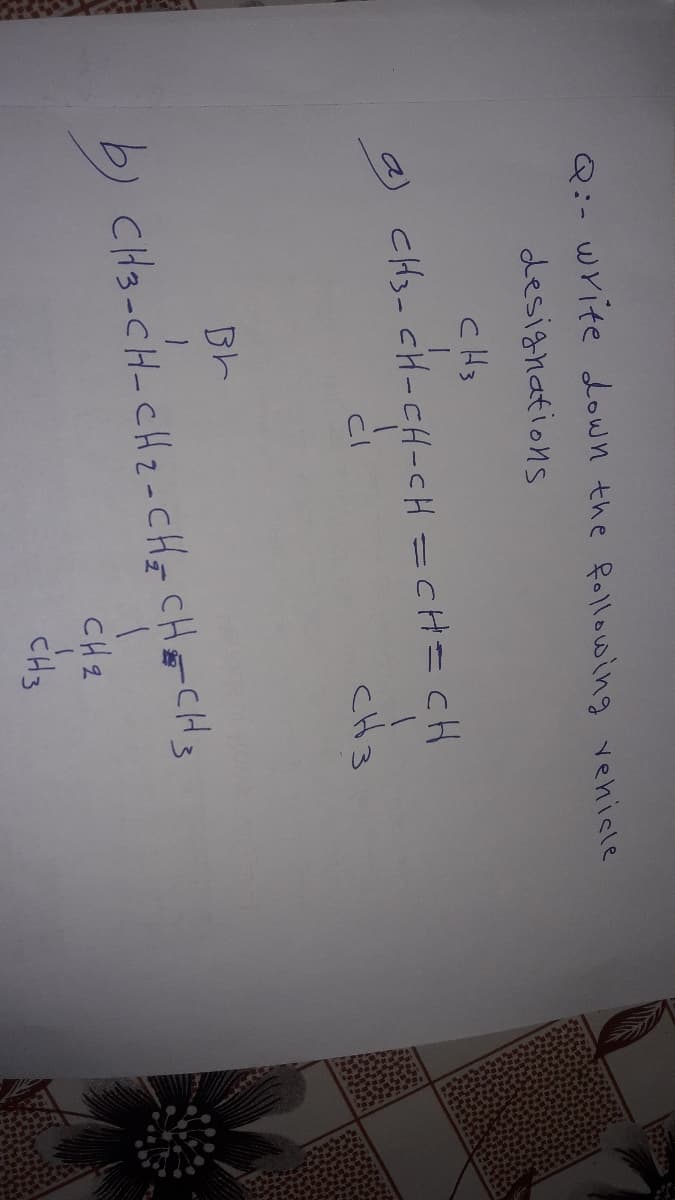 Q:- write down the following vehicle
designations
CH3
a) CH3-CH-CH-CH=CH=CH
Cl CH3
Br
b) CH3-CH-CH2-CH2-CH-CH3
CH2
CH3